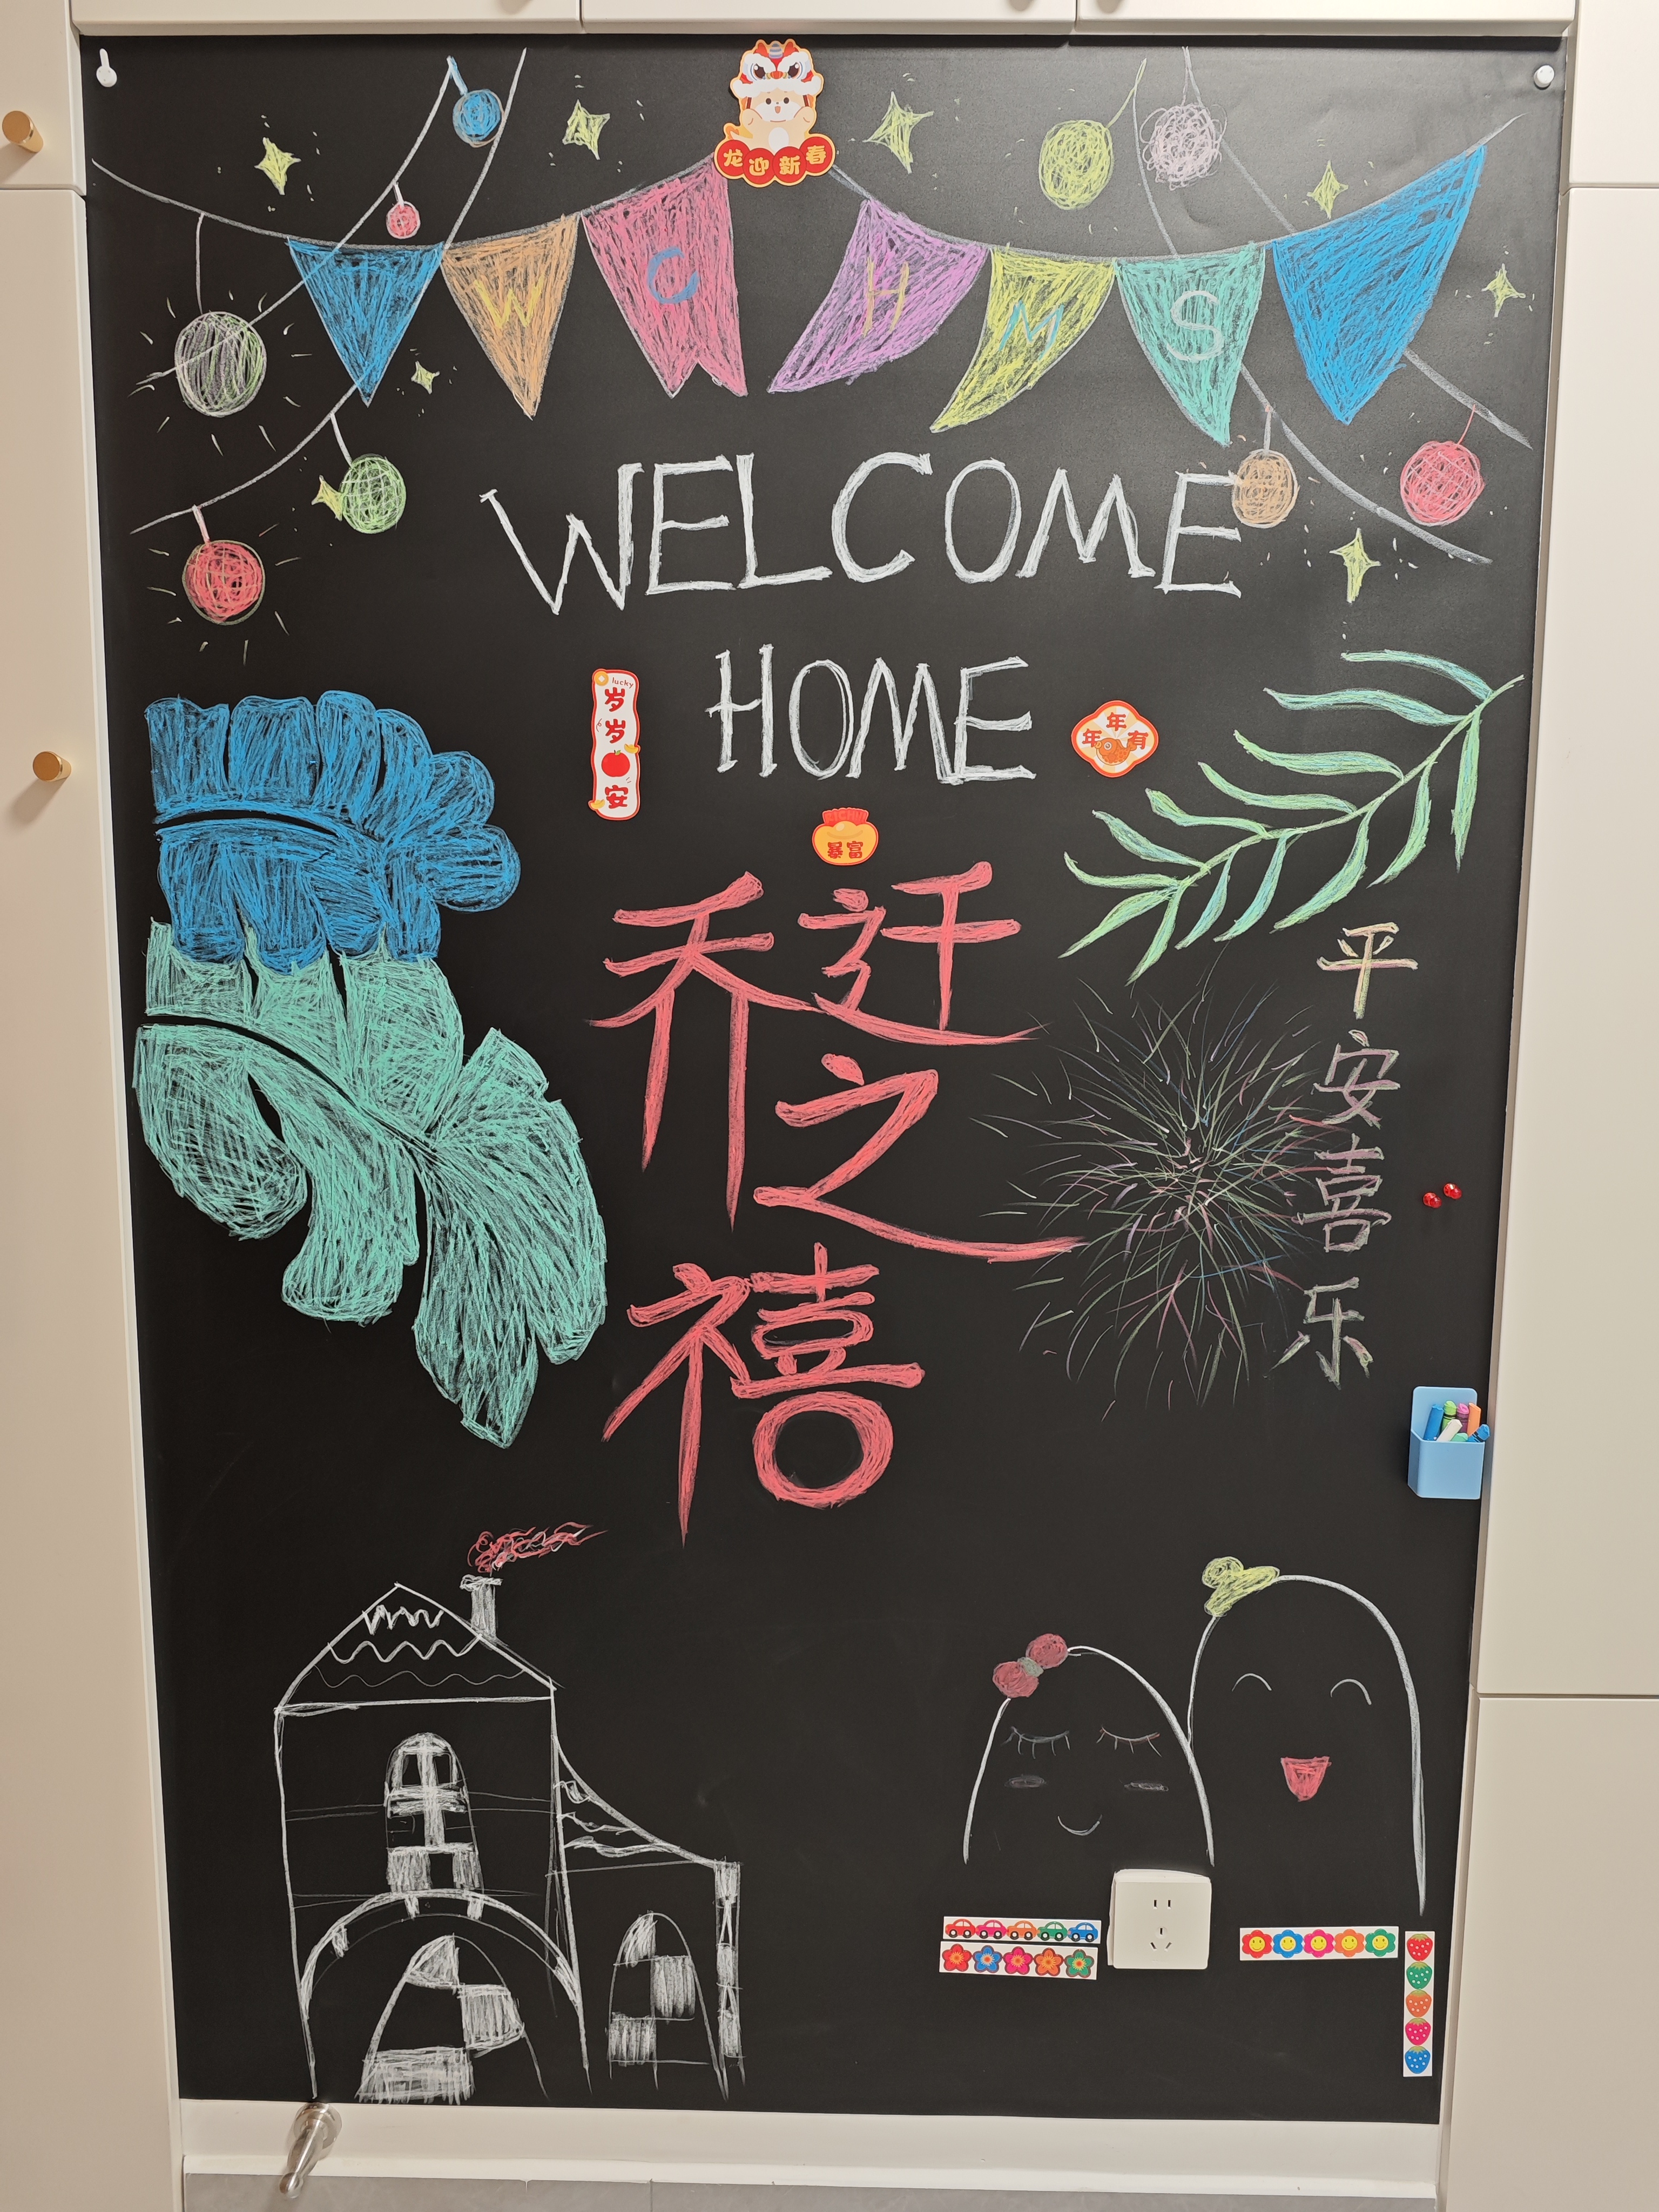 龙迎新春
W C H M S
WELCOME
HOME
lucky
岁岁安
年年有
RICH
暴富
乔迁
之
禧
平安喜乐